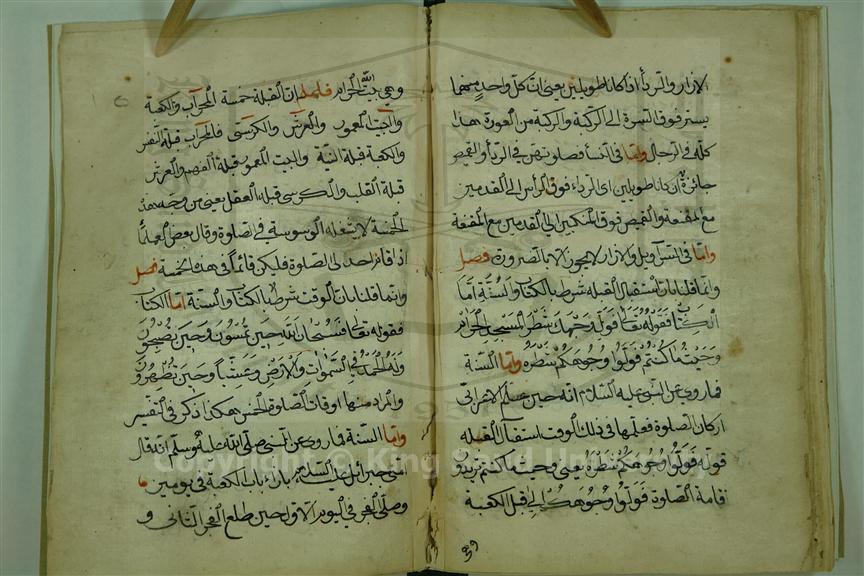 الازار والرداء اذا كانا طويلين يعني ان كل واحد منهما
يستر فوق السرة الى الركبة والركبة من العورة هذا
كله في الرجال واما في النساء فصلوتهن في الرداء والقميص
جائزة ان كانا طويلين اي الرداء فوق الرأس الى القدمين
مع المقنعة والقميص فوق المنكبين الى القدمين مع المقنعة
واما في السراويل والازار لا يجوز الا بالضرورة فصل
وانما قلنا بان استقبال القبلة شرط بالكتاب والسنة اما
الكتاب فقوله تعالى فول وجهك شطر المسجد الحرام
وحيث ما كنتم فولوا وجوهكم شطره واما السنة
فما روي عن النبي عليه السلام انه حين علم الاعرابي
اركان الصلوة فعلمها في ذلك الوقت استقبال القبلة
قوله فولوا وجوهكم شطره يعني وحيث ما كنتم تريدو
اقامة الصلوة فولوا وجوهكم الى قبل الكعبة
وهي بيت الله الحرام فليعلم ان القبلة خمسة المحراب والكعبة
والبيت المعمور والعرش والكرسي فالمحراب قبلة النفس
والكعبة قبلة النية والبيت المعمور قبلة القصد والعرش
قبلة القلب والكرسي قبلة العقل يعني من وجه هذه
الخمسة لا يشغله الوسوسة في الصلوة وقال بعض العلماء
اذا قام احد الى الصلوة فليكن قائما في هذه الخمسة فصل
وانما قلنا بان الوقت شرط بالكتاب والسنة اما الكتاب
فقوله تعالى فسبحان الله حين تمسون وحين تصبحون
وله الحمد في السموات والارض وعشيا وحين تظهرون
والمراد منها اوقات الصلوة الخمس هكذا ذكر في التفسير
واما السنة فما روي عن النبي صلى الله عليه وسلم انه قال
امني جبرائيل عليه السلام بازاء باب الكعبة في يومين
وصلى الفجر في اليوم الاول حين طلع الفجر الثاني و
Copyright © King Saud University